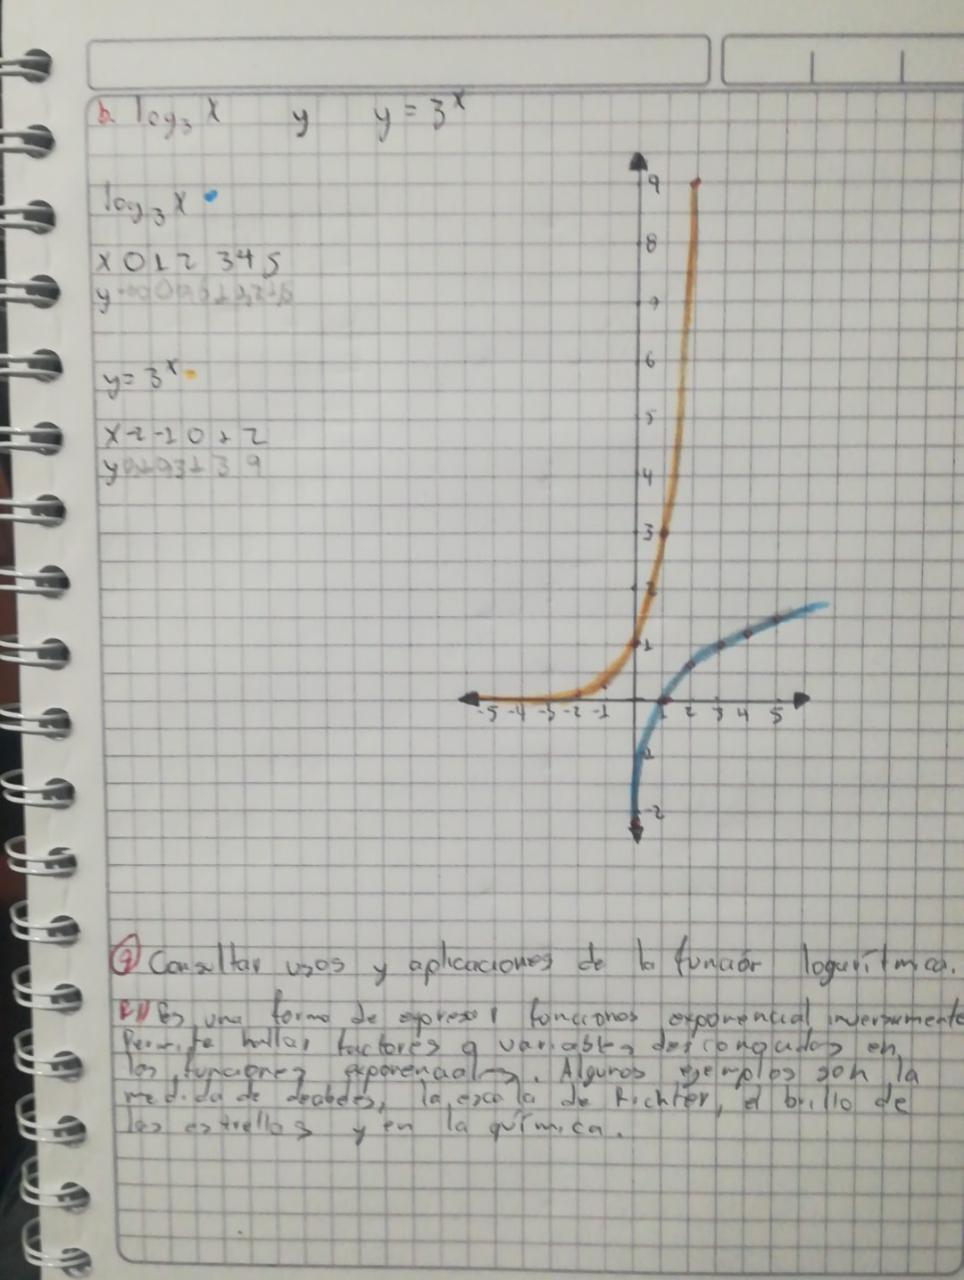 b. log₃ X y y = 3ˣ
log₃ X
X 0 1 2 3 4 5
y
y = 3ˣ
X -2 -1 0 1 2
y 0,1 0,3 1 3 9
9
8
7
6
5
4
3
2
1
-5 -4 -3 -2 -1 1 2 3 4 5
-1
-2
9 Consultar usos y aplicaciones de la función logarítmica.
R// Es una forma de expresar funciones exponencial inversamente
Permite hallar factores o variables desconocidos en
las funciones exponenciales. Algunos ejemplos son la
medida de decibeles, la escala de Richter, el brillo de
las estrellas y en la química.